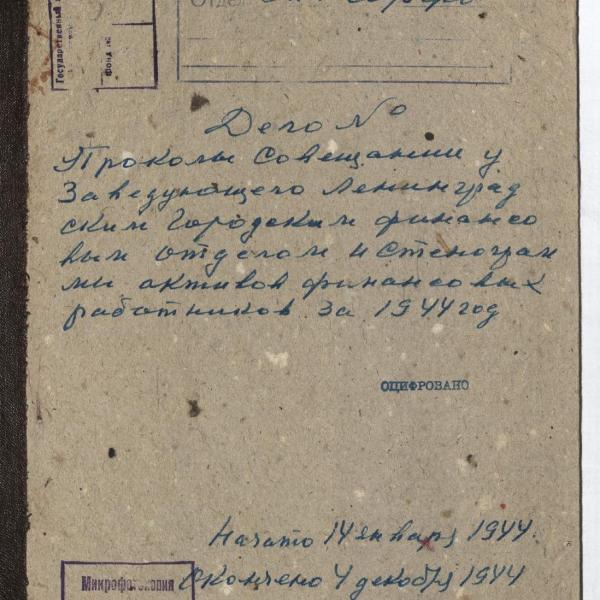 Государственный
Фонд №
Отдел
Дело №
Проколы Совещании у
Заведующего Ленинград
ским Городским финансо
вым отделом и стенограм
мы активов финансовых
работников за 1944 год
ОЦИФРОВАНО
Начато 14 января 1944.
Окончено 4 декабря 1944
Микрофотокопия